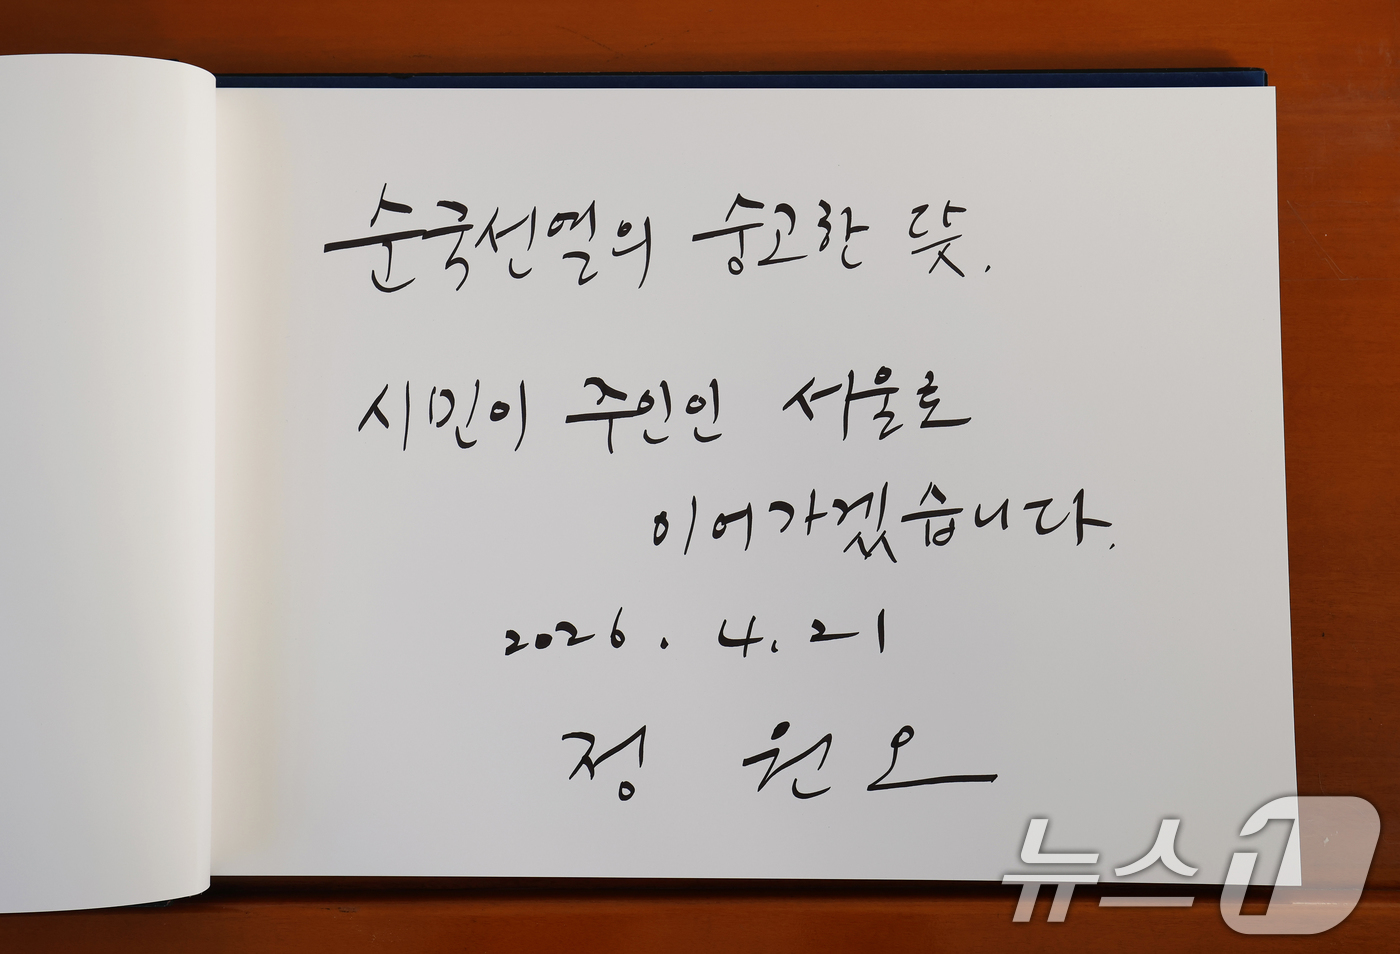 순국선열의 숭고한 뜻.
시민이 주인인 서울로
이어가겠습니다.
2026. 4. 21
정 원오
뉴스1